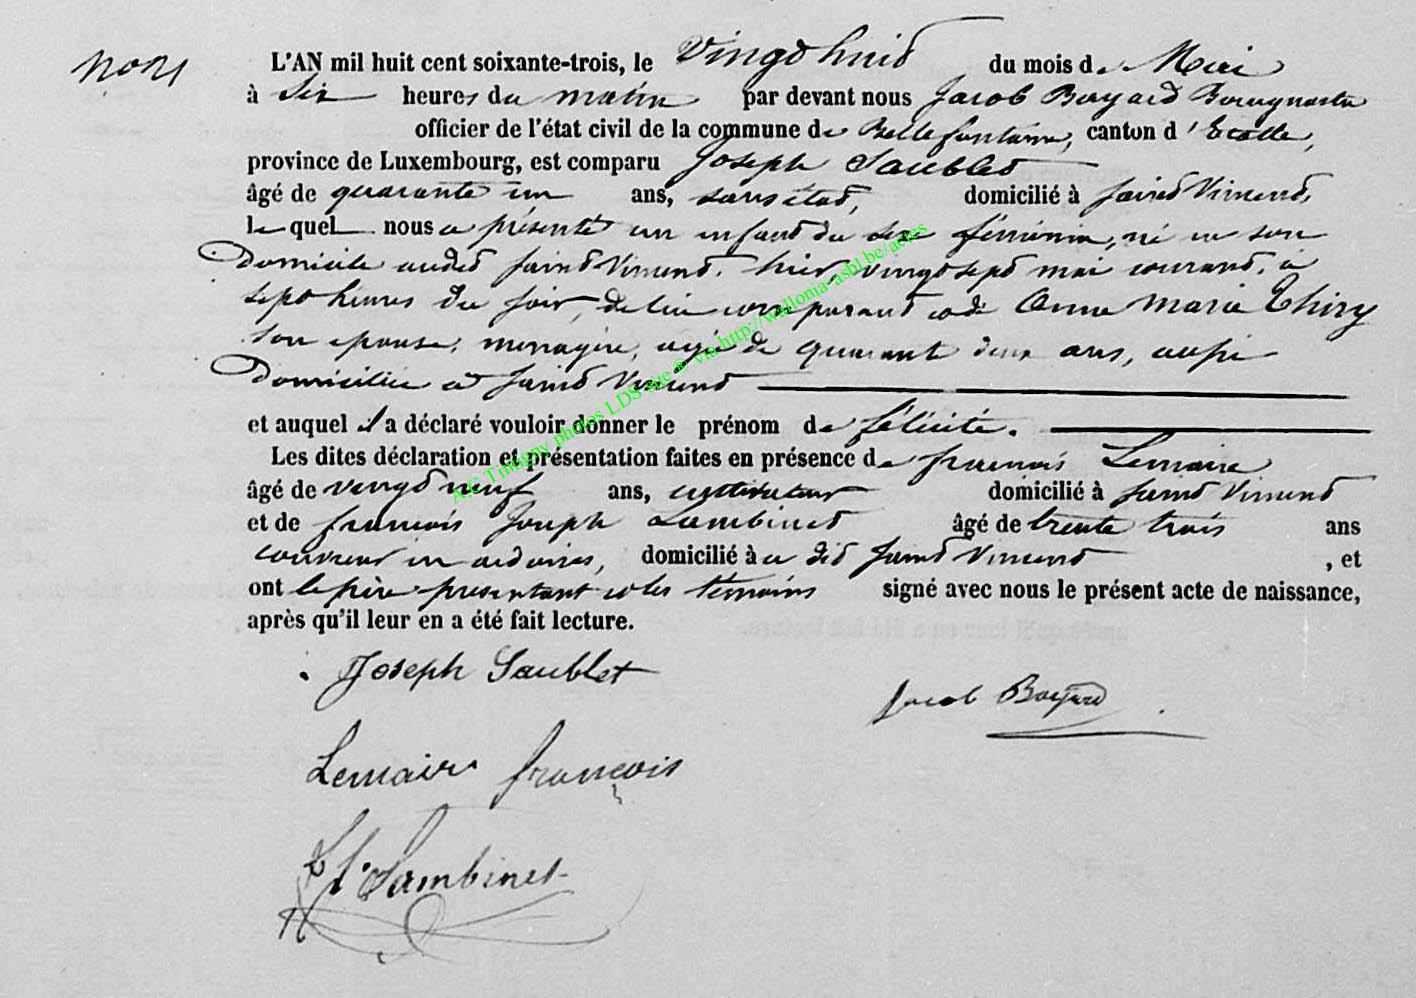 L'AN mil huit cent soixante-trois, le Vingt huit du mois de Mai
à Six heures du matin par devant nous Jacob Bayard Bourgmestre
officier de l'état civil de la commune de Bellefontaine, canton d'Etalle,
province de Luxembourg, est comparu Joseph Saublet
âgé de quarante un ans, sans état, domicilié à Saint Vincent,
lequel nous a présenté un enfant du sexe féminin, né en son
Domicile audit Saint Vincent, hier, vingt sept mai courant, à
sept heures du soir, de lui comparant et de Anne Marie Thiry
son épouse, menagère, agée de quarante deux ans, aussi
Domiciliée à Saint Vincent
et auquel il a déclaré vouloir donner le prénom de félicité.
Les dites déclaration et présentation faites en présence de françois Lemaire
âgé de vingt neuf ans, cultivateur domicilié à Saint Vincent
et de françois Joseph Lambinet âgé de trente trois ans
couvreur en ardoises, domicilié à a dit Saint Vincent, et
ont le père présentant et les témoins signé avec nous le présent acte de naissance,
après qu'il leur en a été fait lecture.
Joseph Saublet
Jacob Bayard
Lemaire françois
Lambinet
A.C Tintigny photos LDS site © via http://wallonia-asbl.be/actes